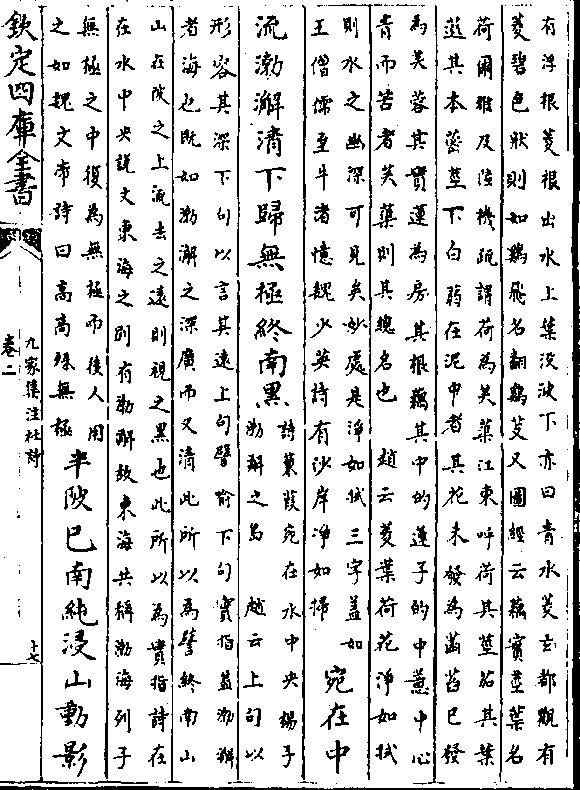 有浮根菱根出水上葉沒波下亦曰青水菱玄都觀有
菱碧色狀則如鷄飛名翻鷄芰又圖經云藕實莖葉名
荷爾雅及陸機疏謂荷為芙蕖江東呼荷其莖茄其葉
蕸其本蔤莖下白蒻在泥中者其花未發為菡萏已發
為芙蓉其實蓮為房其根藕其中的蓮子的中薏中心
青而苦者芙蕖則其總名也 趙云菱葉荷花淨如拭
則水之幽深可見矣妙處是淨如拭三字蓋如
王僧孺至牛渚憶魏少英詩有沙岸淨如掃
宛在中
流渤澥清下歸無極終南黑
詩蒹葭宛在水中央揚子
渤澥之島 趙云上句以
形容其深下句以言其遠上句譬喻下句實指蓋渤澥
者海也既如渤澥之深廣而又清此所以為譬終南山
山在陂之上流去之遠則視之黑也此所以為實指詩在
在水中央說文東海之別有渤澥故東海共稱渤海列子
無極之中復為無極而後人用
之如魏文帝詩曰高高殊無極
半陂已南純浸山動影
欽定四庫全書
九家集注杜詩
卷二
十七